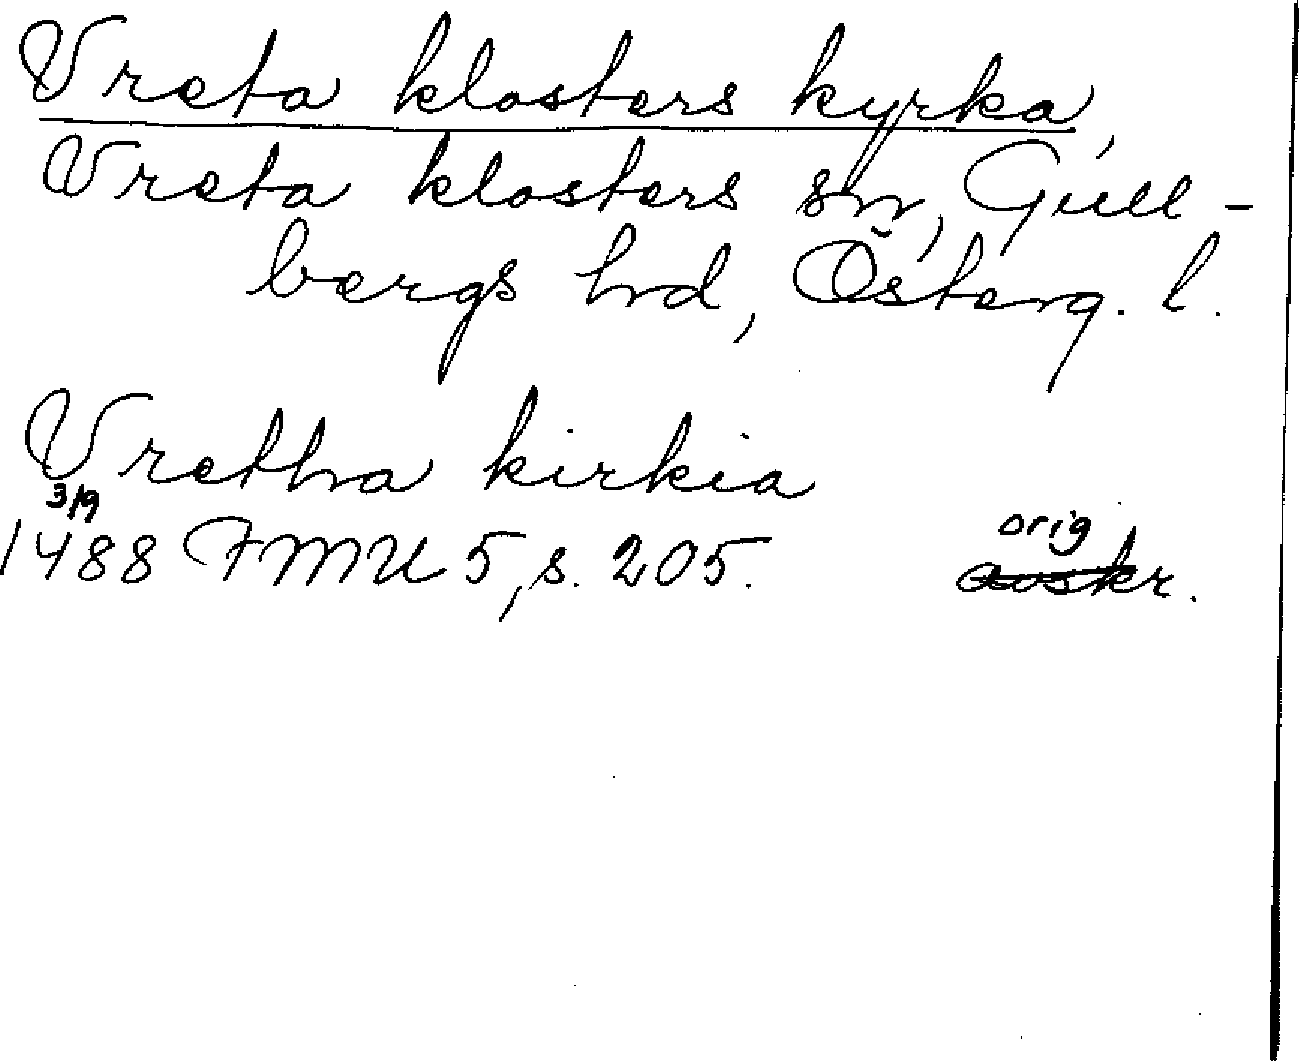 Vreta klosters kyrka,
Vreta klosters sn, Gull-
bergs hrd, Österg. l.
Vretha kirkia
3/9
1488 FMU 5, s. 205.
orig
avskr.